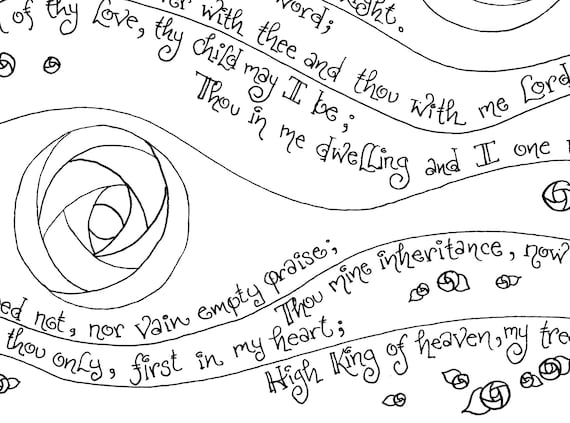 word;
ight.
with thee and thou with me Lord
of thy Love, thy child may I be;
Thou in me dwelling and I one
not, nor vain empty praise;
Thou mine inheritance, now
thou only, first in my heart;
High King of heaven, my